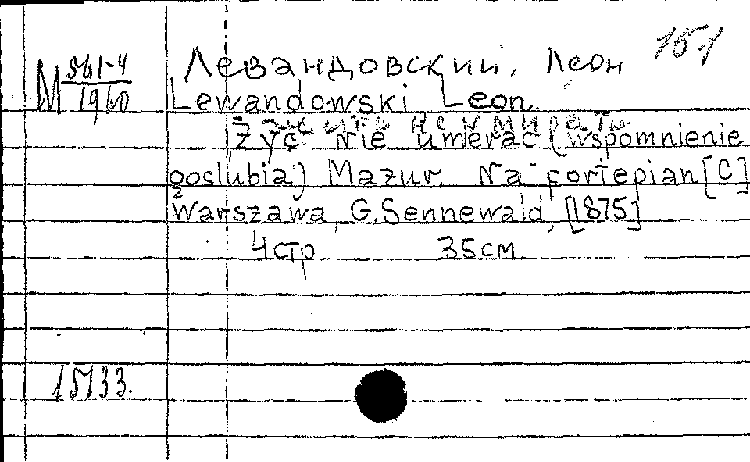 М 561-4/1960
Левандовский, Леон 151
Lewandowski Leon.
Жить не умирать
Żyć nie umerać (wspomnienie
goslubia) Mazur. Na fortepian [C]
Warszawa, G. Sennewald, [1875]
4 стр. 35 см.
15133.